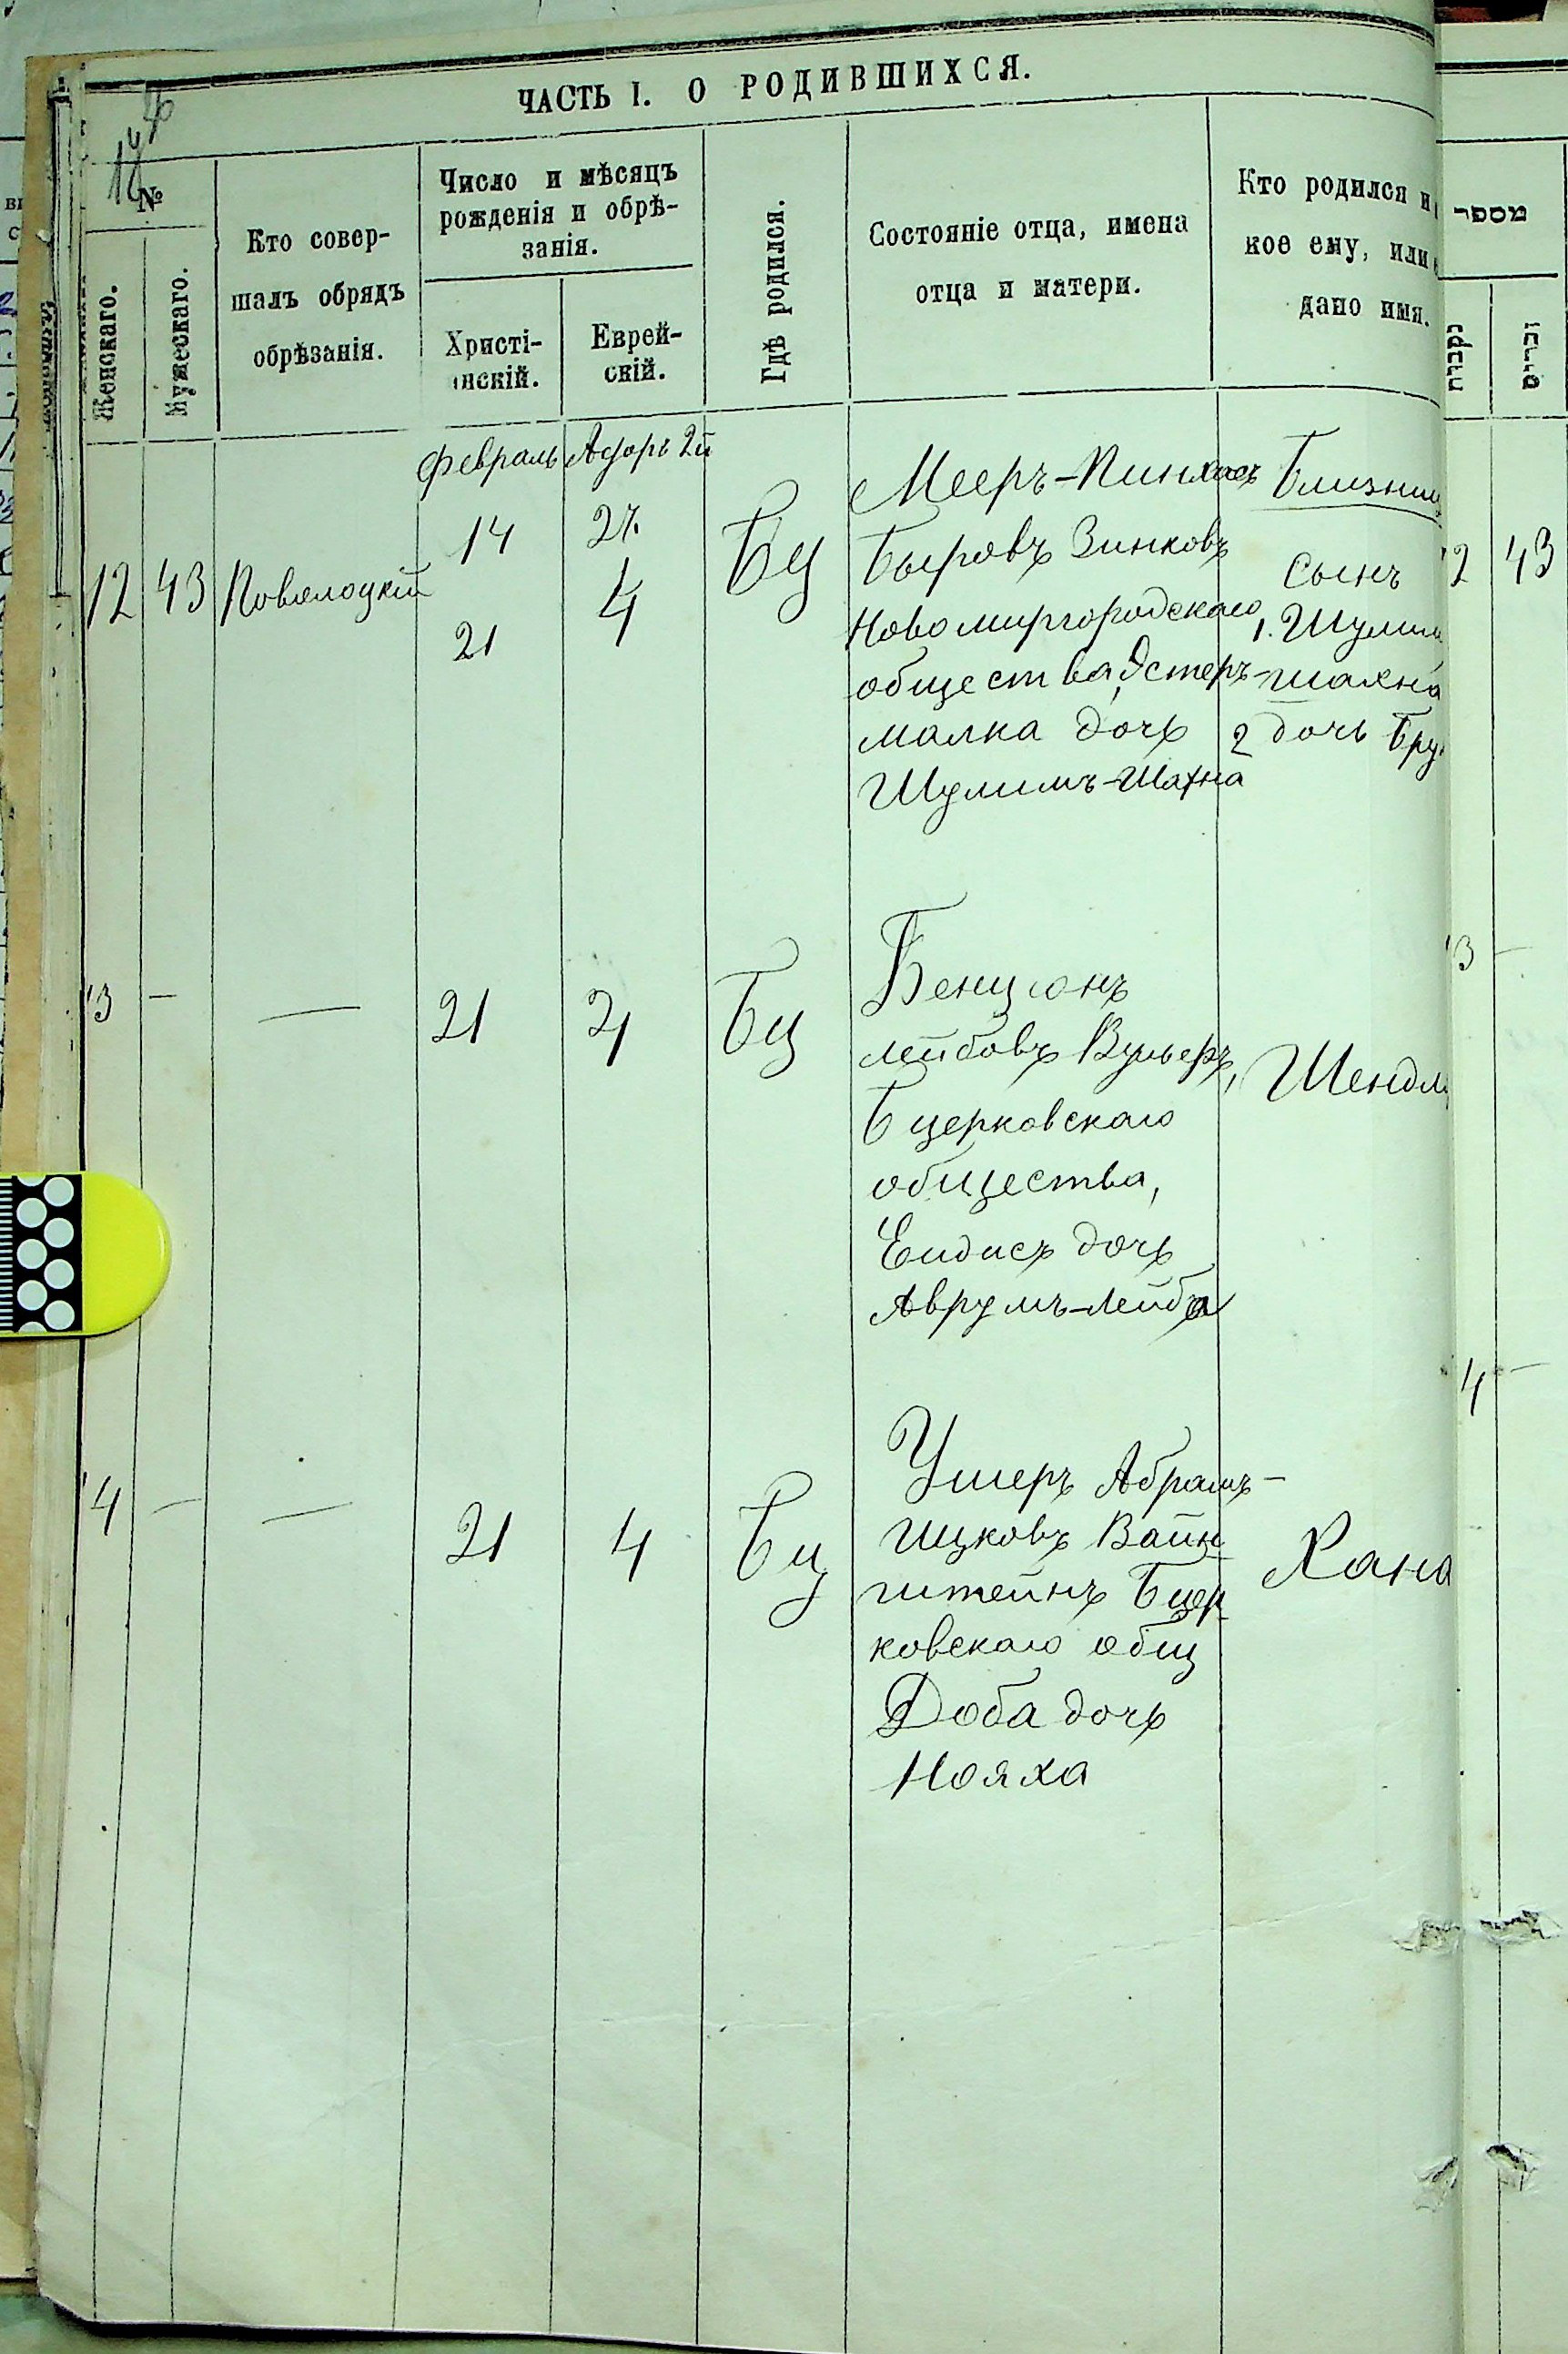 ЧАСТЬ I. О РОДИВШИХСЯ.
№
Женскаго.
Мужескаго.
Кто совер-
шалъ обрядъ
обрѣзанія.
Число и мѣсяцъ
рожденія и обрѣ-
занія.
Христі-
анскій.
Еврей-
скій.
Гдѣ родился.
Состояніе отца, имена
отца и матери.
Кто родился и
кое ему, или
дано имя.
מספר
נקבות
זכרים
Февраль Адаръ 2й
12 43
14 27
21 4
БЦ
Мееръ-Пинхасъ
Зинковъ
Новомиргородскаго
общества, Эстеръ-
малка дочь
Шулимъ-Шахна
Близниц
Сынъ
1. Шулим
шахна
2 дочь Бру
2 43
13 — — 21 4 Бц
Бенционъ
лейбовъ Вульфъ,
Бцерковскаго
общества,
Ендисъ дочь
Аврумъ-лейба
Шендл
3 —
14 — — 21 4 Бц
Ушеръ Абрамъ-
Ицковъ Вайн
штейнъ Бцер
ковскаго общ
Доба дочь
Нояха
Хана
4 —